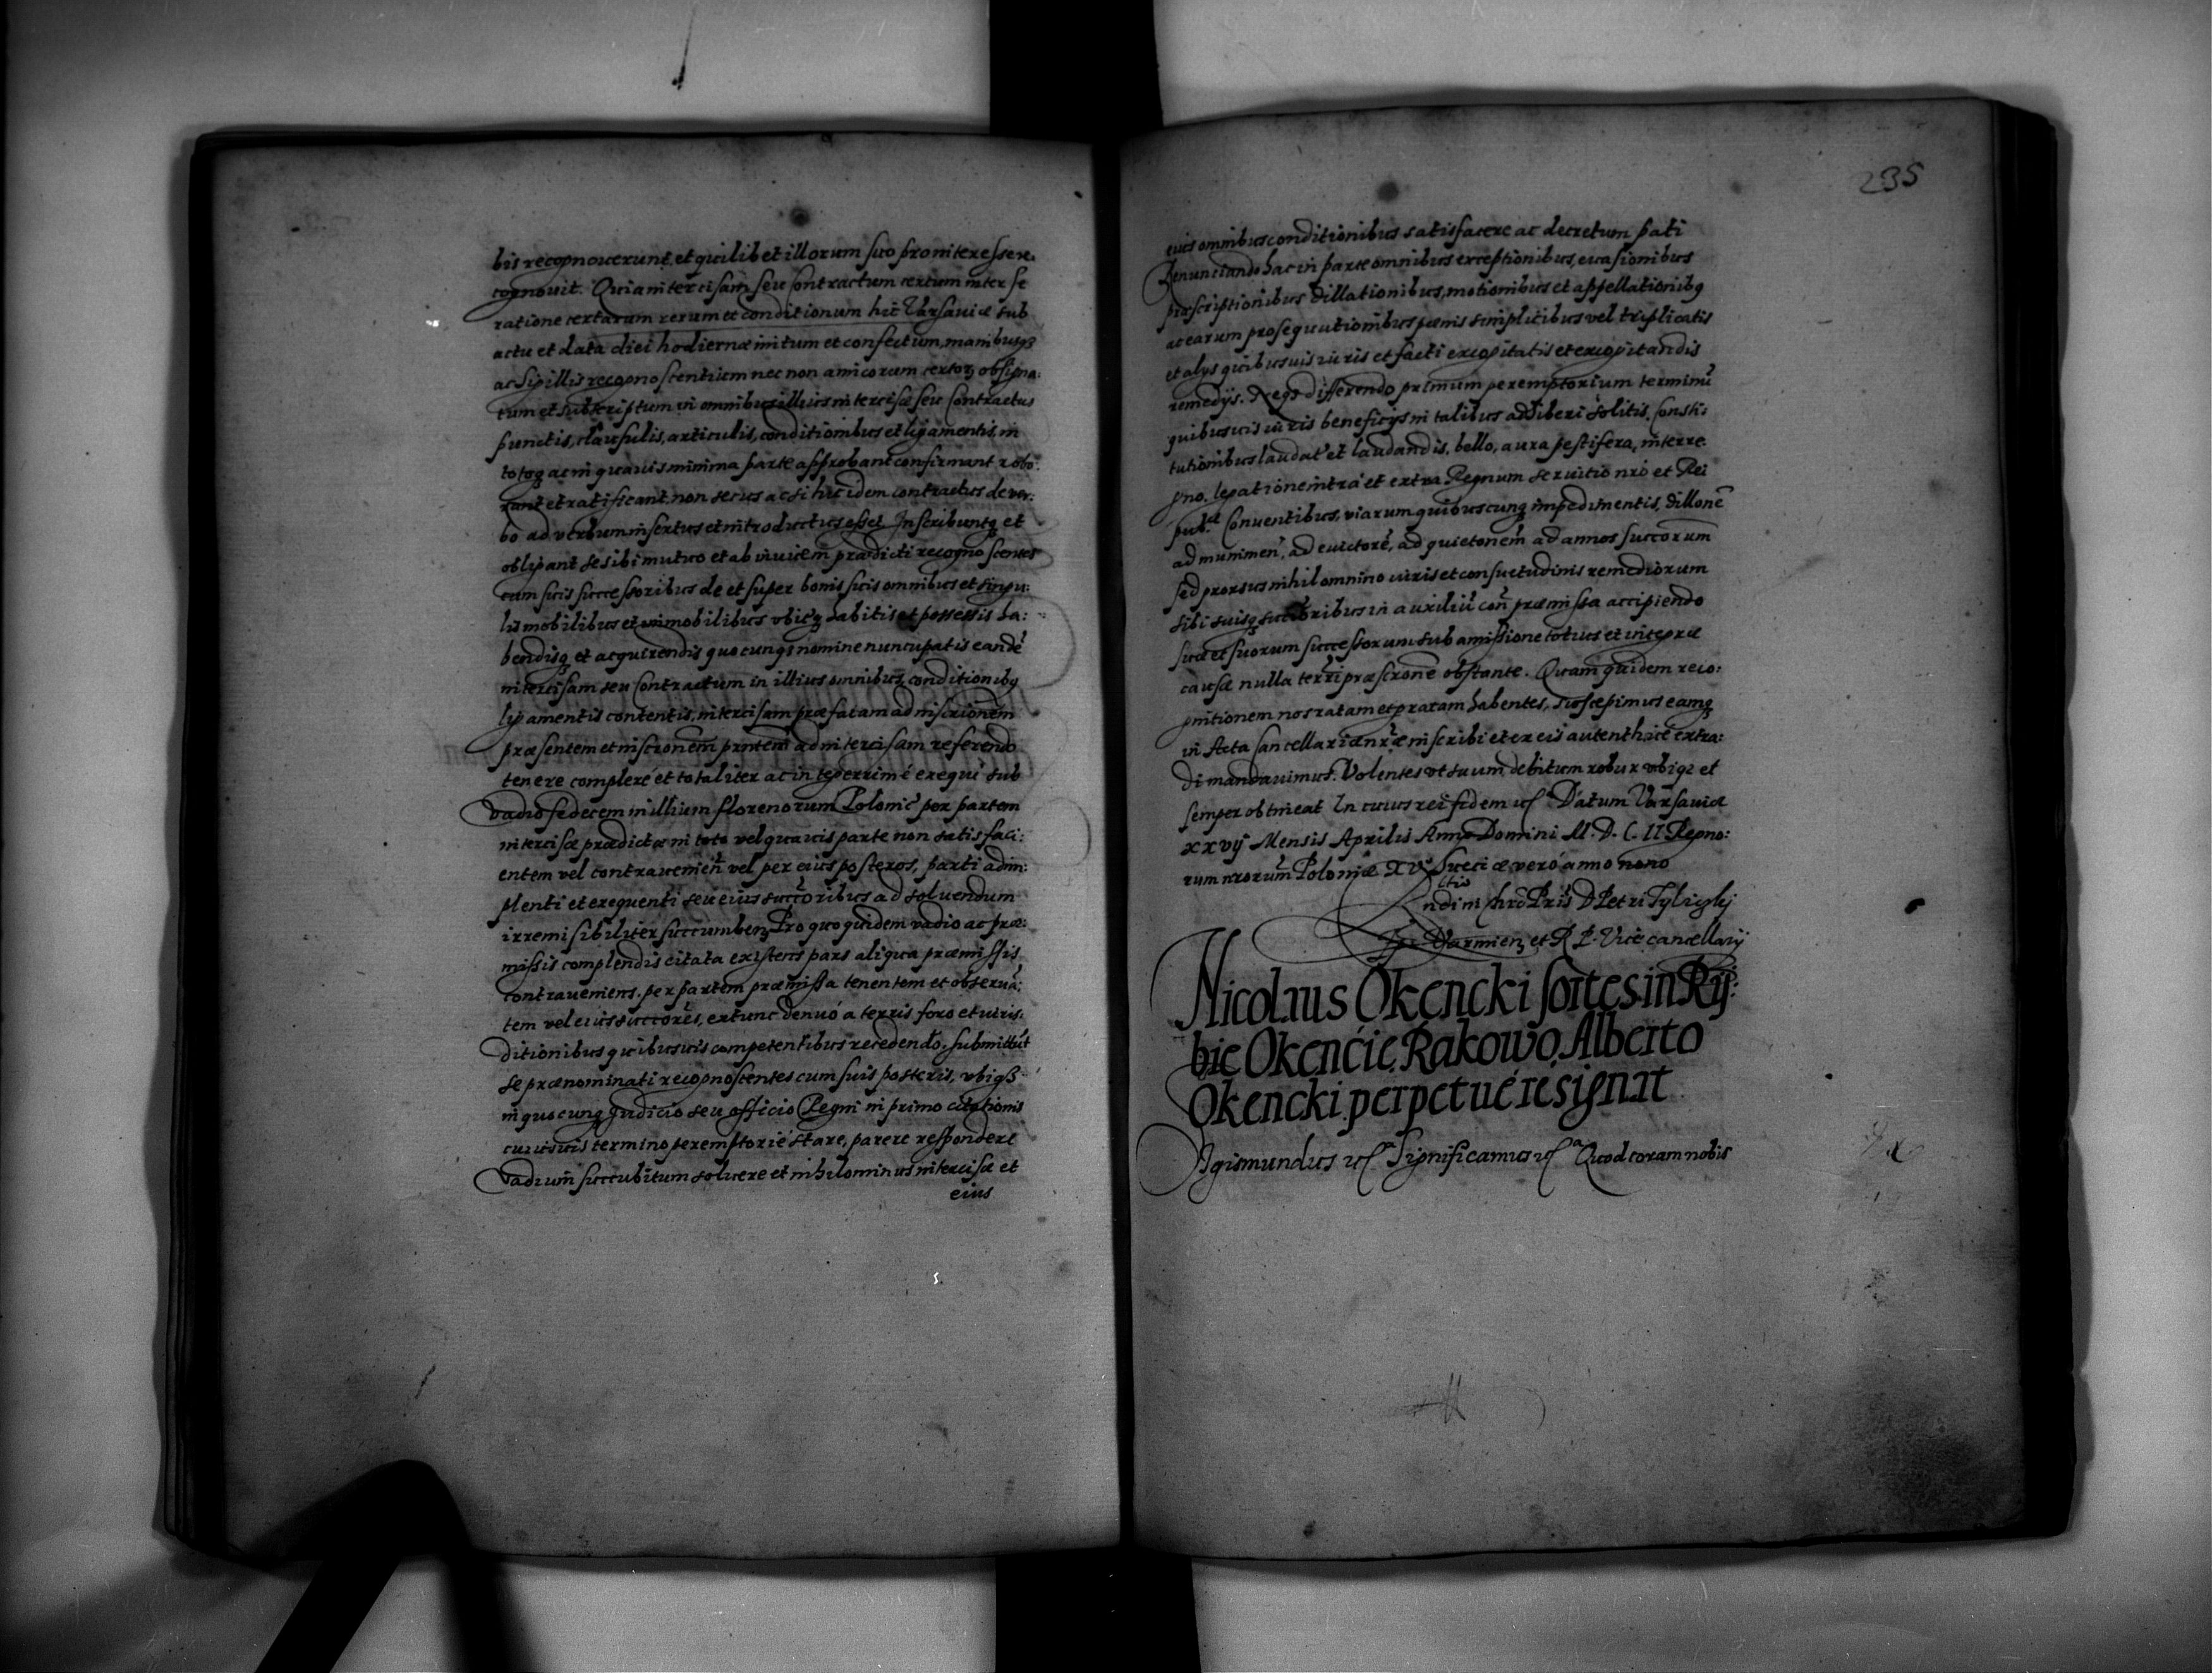 bis recognoverunt et quilibet illorum suo pro interesse re-
cognovit. Quia intercisam seu Contractum certum inter se
ratione certarum rerum et conditionum hic Varsaviæ sub
actu et data diei hodiernæ initum et confectum, manibusq3
ac Sigillis recognoscentium nec non amicorum certor3 obsigna:
tum et subscriptum in omnibus illius intercisæ seu Contractus
punctis, clausulis, articulis, conditionibus et ligamentis, in
totoq3 ac in quavis minima parte approbant confirmant robo:
rant et ratificant non secus ac si hic idem contractus de ver:
bo ad verbum insertus et introductus esset Inscribuntq3 et
obligant se sibi mutuo et ab invicem prædicti recognoscentes
cum suis successoribus de et super bonis suis omnibus et singu:
lis mobilibus et immobilibus vbicq3 habitis et possessis ha:
bendisq3 et acquirendis quocunq3 nomine nuncupatis eandẽ
intercisam seu Contractum in illius omnibus, conditionib9
ligamentis contentis, intercisam præfatam ad inscrionem
præsentem et inscronẽm pntem ad intercisam referendo
tenere complere et totaliter ac integerrimè exequi sub
vadio sedecem millium florenorum Poloniẽ per partem
intercisæ prædictæ in toto vel quavis parte non satisfaci:
entem vel contravenieñ vel per eius posteros, parti adim:
plenti et exequenti seu eius succoribus ad solvendum
irremisibiliter succumben3 Pro quo quidem vadio ac præ:
missis complendis citata existens pars aliqua præmissis
contraveniens. per partem præmissa tenentem et observã:
tem vel eius succores, extunc denuò a terris foro et iuris:
ditionibus quibusvis competentibus recedendo, submittũt
se prænominati recognoscentes cum suis posteris, vbiq3
in quocunq3 Judicio seu officio Regni in primo citationis
cuiusvis termino peremptorie stare, parere respondere
vadium succubitum solvere et nihilominus intercisæ et
eius
235
eius omnibus conditionibus satisfacere ac decretum pati
Renunciando hac in parte omnibus exceptionibus, evasionibus
præscriptionibus dillationibus, motionibus et appellationib9
ac earum prosequutionibus pænis simplicibus vel triplicatis
et alys quibusuis iuris et facti excogitatis et excogitandis
remedys. Neq3 differendo primum peremptorium terminũ
quibusvis iuris beneficys in talibus adhiberi solitis, Consti:
tutionibus laudat' et laudandis, bello, aura pestifera, interre
gno. legatione intra et extra Regnum servitio nro et Rei
pub.cæ Conventibus, viarum quibuscunq3 impedimentis, dillonẽ
ad munimen, ad evictorẽ, ad quietonem ad annos succorum
sed prorsus nihil omnino iuris et consuetudinis remediorum
sibi suisq3 succoribus in auxiliũ coñ præmissa accipiendo
suæ et suorum successorum sub amissione totius et integræ
causæ nulla terri præscrone obstante. Quam quidem reco:
gnitionem nos ratam et gratam habentes, suscepimus eamq3
in Acta Cancellariæ nræ inscribi et ex eis autenthicè extra:
di mandavimus. Volentes vt suum debitum robur vbiq3 et
semper obtineat In cuius rei fidem etc Datum Varsaviæ
xxvij Mensis Aprilis Anno Domini M. D. C. II Regno:
rum nrorum Poloniæ XV Sueciæ verò anno nono
ndi in Chrõ Pris D Petri Tylicskj
Epi Varmien3 et R P. Vice cancellarij
Nicolaus Okencki sortes in Ry:
bie Okencie Rakowo Alberto
Okencki perpetue resignat
Sigismundus etc Significamus etc Quod coram nobis